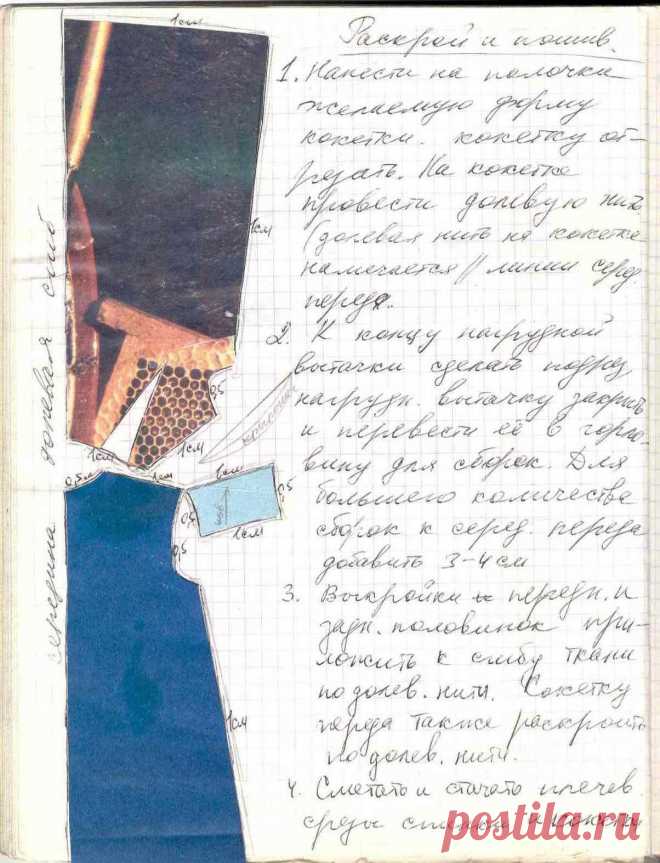 Раскрой и пошив.
1. Нанести на полочки
желаемую форму
кокетки. кокетку от-
резать. На кокетке
провести долевую нить
(долевая нить на кокетке
намечается // линии серед.
переда.
2. К концу нагрудной
вытачки сделать подрез,
нагрудн. вытачку закрыть
и перевести её в горло-
вину для сборок. Для
большего количества
сборок к серед. переда
добавить 3-4 см
3. Выкройки передн. и
задн. половинок при-
ложить к сгибу ткани
по долев. нити. Кокетку
переда также раскроить
по долев. нити.
4. Сметать и стачать плечев.
срезы спинки и кокетки
середина долевая сгиб
1см
1см
0,5
1см
1см
0,5
1см
1см
0,5
0,5
1см
0,5
1см
postila.ru